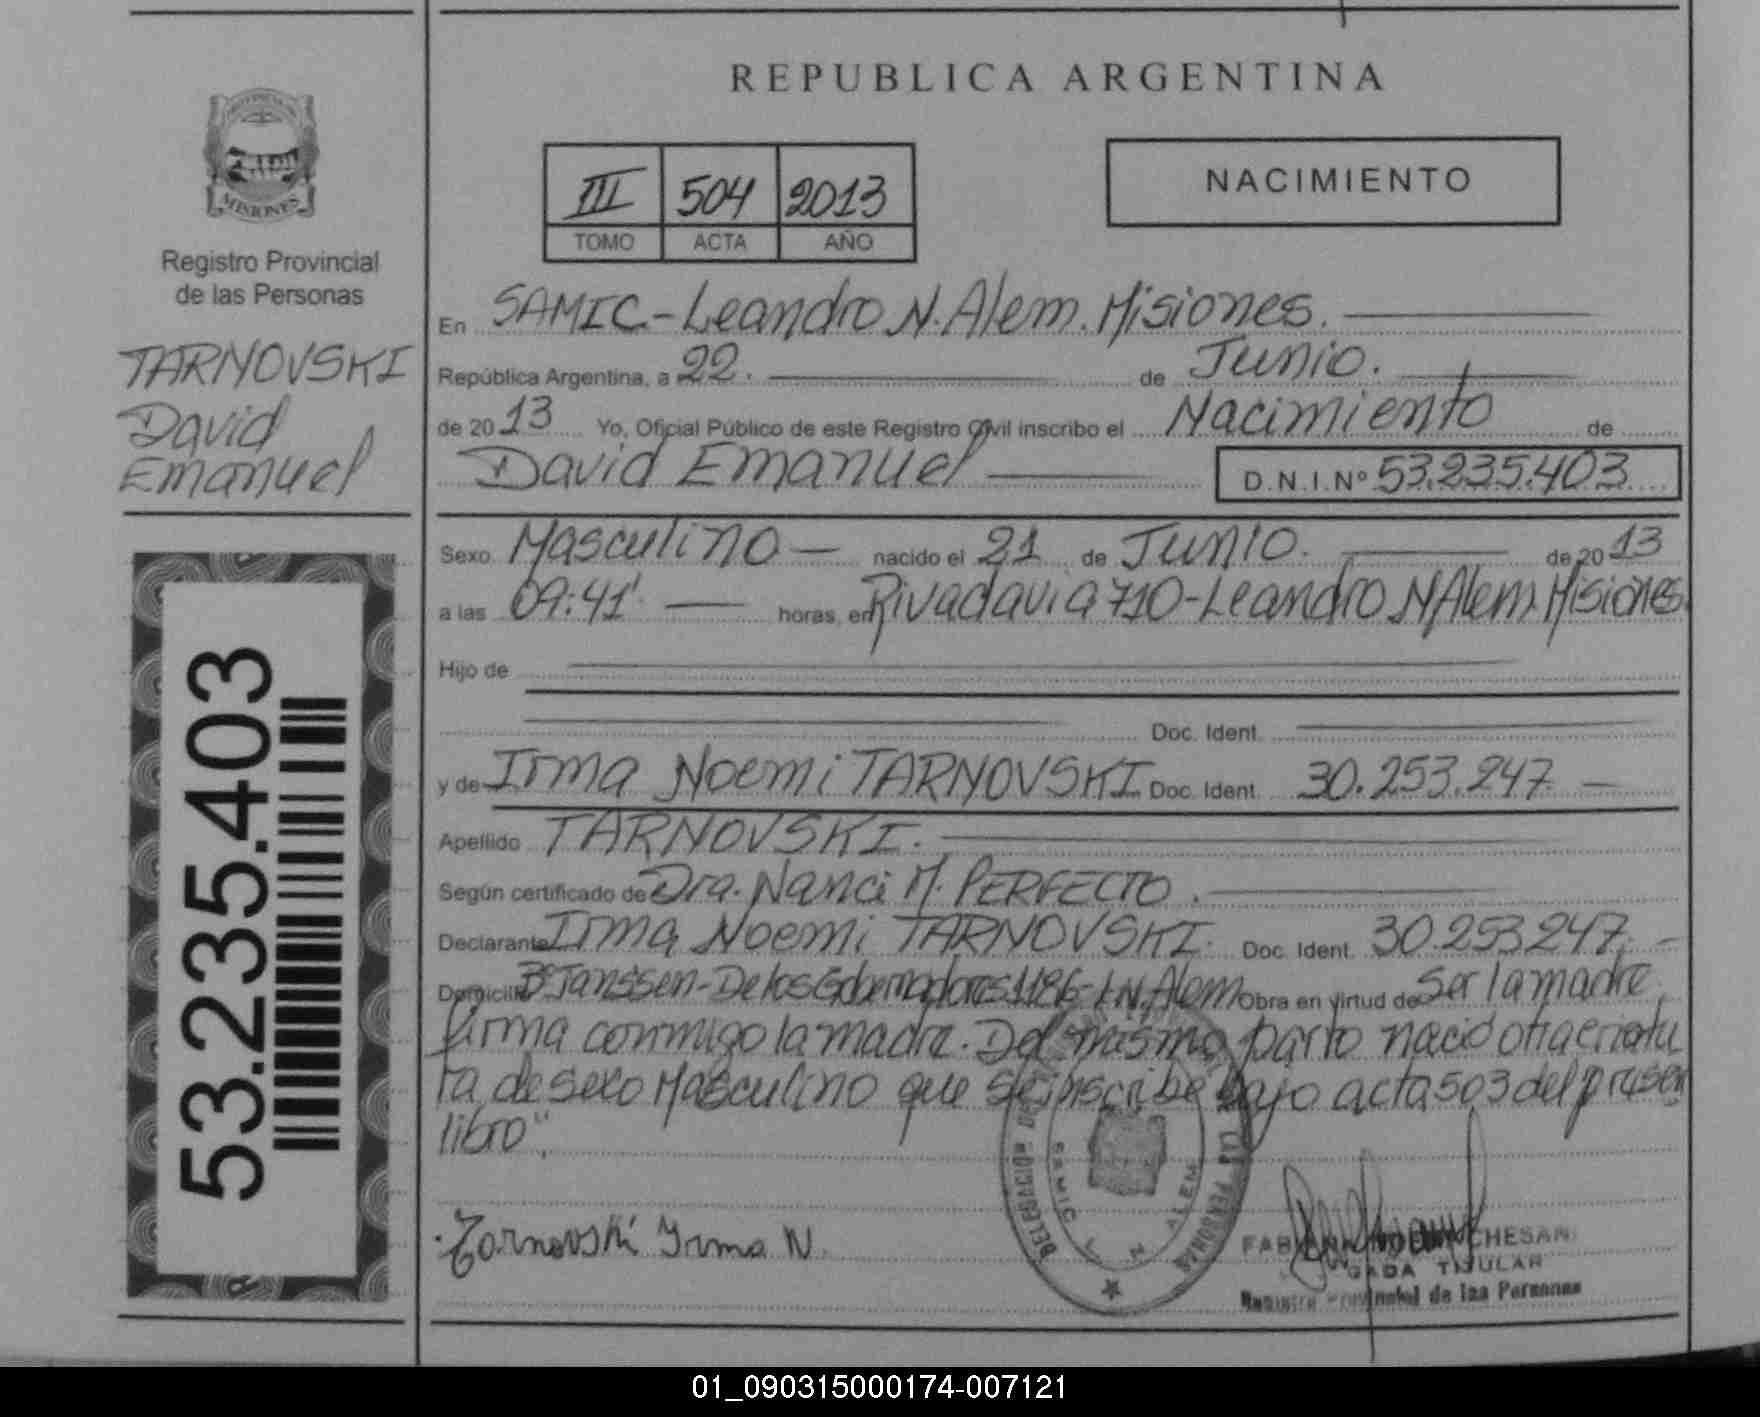 REPUBLICA ARGENTINA
MISIONES
Registro Provincial
de las Personas
TARNOVSKI
David
Emanuel
53.235.403
III 504 2013
TOMO ACTA AÑO
NACIMIENTO
En SAMIC.-Leandro N. Alem. Misiones.
República Argentina, a 22. de Junio.
de 2013 Yo, Oficial Público de este Registro Civil inscribo el Nacimiento de
David Emanuel D.N.I.Nº 53.235.403
Sexo Masculino nacido el 21 de Junio. de 2013
a las 09:41'. horas, en Rivadavia 710-Leandro N Alem. Misiones.
Hijo de
Doc. Ident.
y de Irma Noemi TARNOVSKI Doc. Ident. 30.253.247
Apellido TARNOVSKI.
Según certificado de Dra. Nanci M. PERFECTO.
Declarante Irma Noemi TARNOVSKI. Doc. Ident. 30.253.247.
Domicilio Bº Janssen-De los Gobernadores 1186-L.N. Alem Obra en virtud de ser la madre
firma conmigo la madre. Del mismo parto nacio otra criatu
ra de sexo Masculino que se inscribe bajo acta 503 del presen
libro".
Tarnovski Irma N.
DELEGACION LAS PERSONAS
SAMIC L N ALEM
CHESANI
GADA TITULAR
Registro Provincial de las Personas
01_090315000174-007121